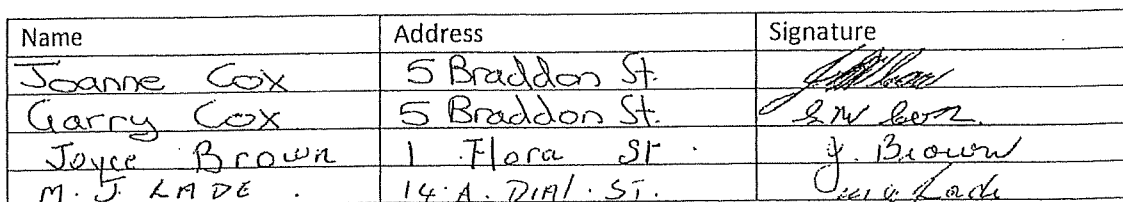 Name Address Signature
Joanne Cox 5 Braddon St.
Garry Cox 5 Braddon St.
Joyce Brown 1 Flora St. J. Brown
M. J LADE. 14.A. DIAL. ST. Lade